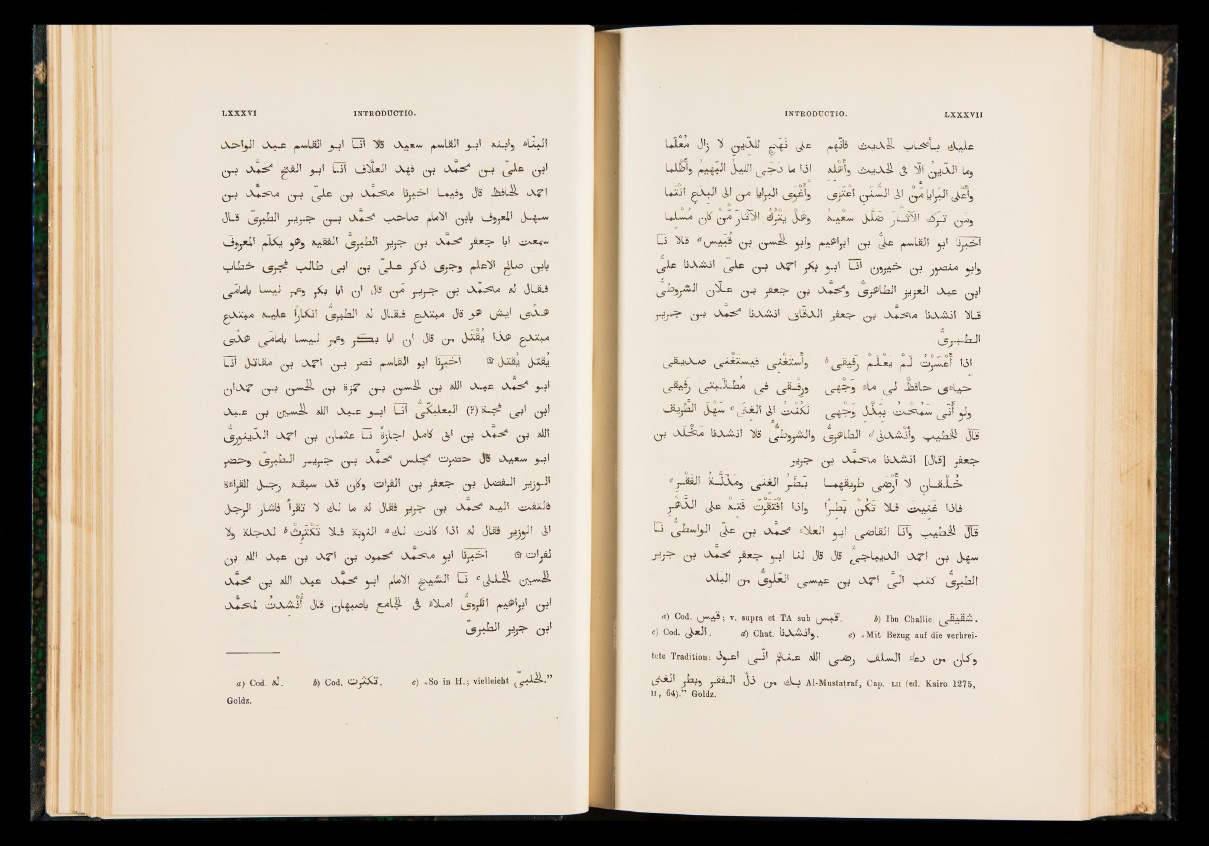 LXXXVI INTRODUCTIO.
البنّاء وابنه ابو القاسم سعيد قالا انّا ابو القاسم عبد الواحد
ابن علىّ بن محمّد بن فهد العلّاف انّا ابو الفتح محمّد بن
احمد الحافظ قال وفيما اخبرنا محمّد بن علىّ بن محمّد بن
سهل المعروف بابن الامام صاحب محمّد بن جرير الطبرىّ قال
سمعت ابا جعفر محمّد بن جرير الطبرىّ الفقيه وهو يكلّم المعروف
بابن صالح الاعلم وجرى ذكر علىّ بن ابى طالب فجرى خطاب
فقال له محمّد بن جرير مَن قال ان ابا بكر وعمر ليسا بامامَى
هدًى ايش هو قال مبتدع فقال له الطبرىّ انكارًا عليه مبتدع
مبتدع هذا يُقْتَل من قال ان ابا بكر وعمر ليسا بامامَى هدًى
يُقْتَل يُقْتَل ۞ اخبرنا ابو القاسم نصر بن احمد بن مقاتل انّا
ابو محمّد عبد الله بن الحسن بن حمزة بن الحسن بن حمدان
ابن ابى فجّة (?) البعلبكّىّ انّا ابو عبد الله الحسين بن عبد
الله بن محمّد بن ابى كامل اجازةً نّا عثمان بن احمد الدينورىّ
ابو سعيد قال حضرت مجلس محمّد بن جرير الطبرىّ وحضر
الوزير الفضل بن جعفر بن الفرات وكان قد سبقه رجل للقراءة
فالتفت اليه محمّد بن جرير فقال له ما لك لا تقرأ فاشار الرجل
الى الوزير فقال له اذا كانت لك a النوبة فلا تَكْتَرِثْ b لدجلة ولا
لفرات ۞ اخبرنا ابو محمّد محمود بن احمد بن عبد الله بن
الحسين الحللى c نّا الشيخ الامام ابو محمّد عبد الله بن محمّد
ابن ابراهيم الكروىّ املاء فى الجامع باصبهان قال أُنْشِدتُ لمحمّد
ابن جرير الطبرىّ
a) Cod. له. b) Cod. تكثرت. c) „So in H.; vielleicht الحلبىّ.”
Goldz.
INTRODUCTIO. LXXXVII
عليك بأصحاب الحديث فانّهم على نَهَجٍ للدّين لا زال مُعْلَما
وما الدّينُ الّا فى الحديث وأهله اذا ما دجى الليلُ البهيمُ وأظلما
وأعلى البرايا مَنْ الى السُنَن اعْتَزَى وأغْوَى البرايا من الى البدَعِ انْتَما
ومن تركَ الآثارَ ضُلِّلَ سعيُهُ وهل يتْرُكُ الآثارَ مَنْ كان مُسْلِما
اخبرنا ابو القاسم علىّ بن ابراهيم وابو الحسن بن قُبَيس a قالا نّا
وابو منصور بن خيرون انّا ابو بكر احمد بن علىّ انشدنا علىّ
ابن عبد العزيز الطاهرىّ ومحمّد بن جعفر بن علان الشروطىّ
قالا انشدنا محمّد بن جعفر الدقّاق انشدنا محمّد بن جرير
الطبرىّ
اذا أعْسَرْتُ لم يَعْلَمْ رفيقى b وأستغنى فيستغنى صديقى
حيائى حافظٌ لى ماءَ وَجْهى ورِفقى فى مُطالَبتى رفيقى
ولو أنّى سَمَحْتُ ببَذْلِ وَجْهى لَكُنْتُ الى الغنى c سَهْلَ الطريق
قال الخطيب وأنشدنى d الطاهرىّ والشروطىّ قالا انشدنا مَخْلَد بن
جعفر [قال] انشدنا محمّد بن جرير
خُلُقان لا أرْضَى طريقهما بَطَرُ الغنى ومذَلَّةُ الفَقْر e
فاذا غَنيتَ فلا تَكُنْ بَطِرًا واذا افْتَقَرْتَ فَتِهْ على الدَّهْر
قال الخطيب وانّا القاضى ابو العلاء محمّد بن علىّ الواسطىّ نّا
سهل بن احمد الديباجىّ قال قال لنا ابو جعفر محمّد بن جرير
الطبرىّ كتب الىّ احمد بن عيسى العلوىّ من البلد
a) Cod. قيس; v. supra et TA sub قبس. b) Ibn Challic. شقيقى.
c) Cod. العلى. d) Chat. وانشدنا. e) „Mit Bezug auf die verbrei-
tete Tradition: وكان من دعاء السلف رضى الله عنهم انّى اعوذ
بك من ذلّ الفقر وبطر الغنى Al-Mustatraf, Cap. LII (ed. Kairo 1275,
II, 64).” Goldz.